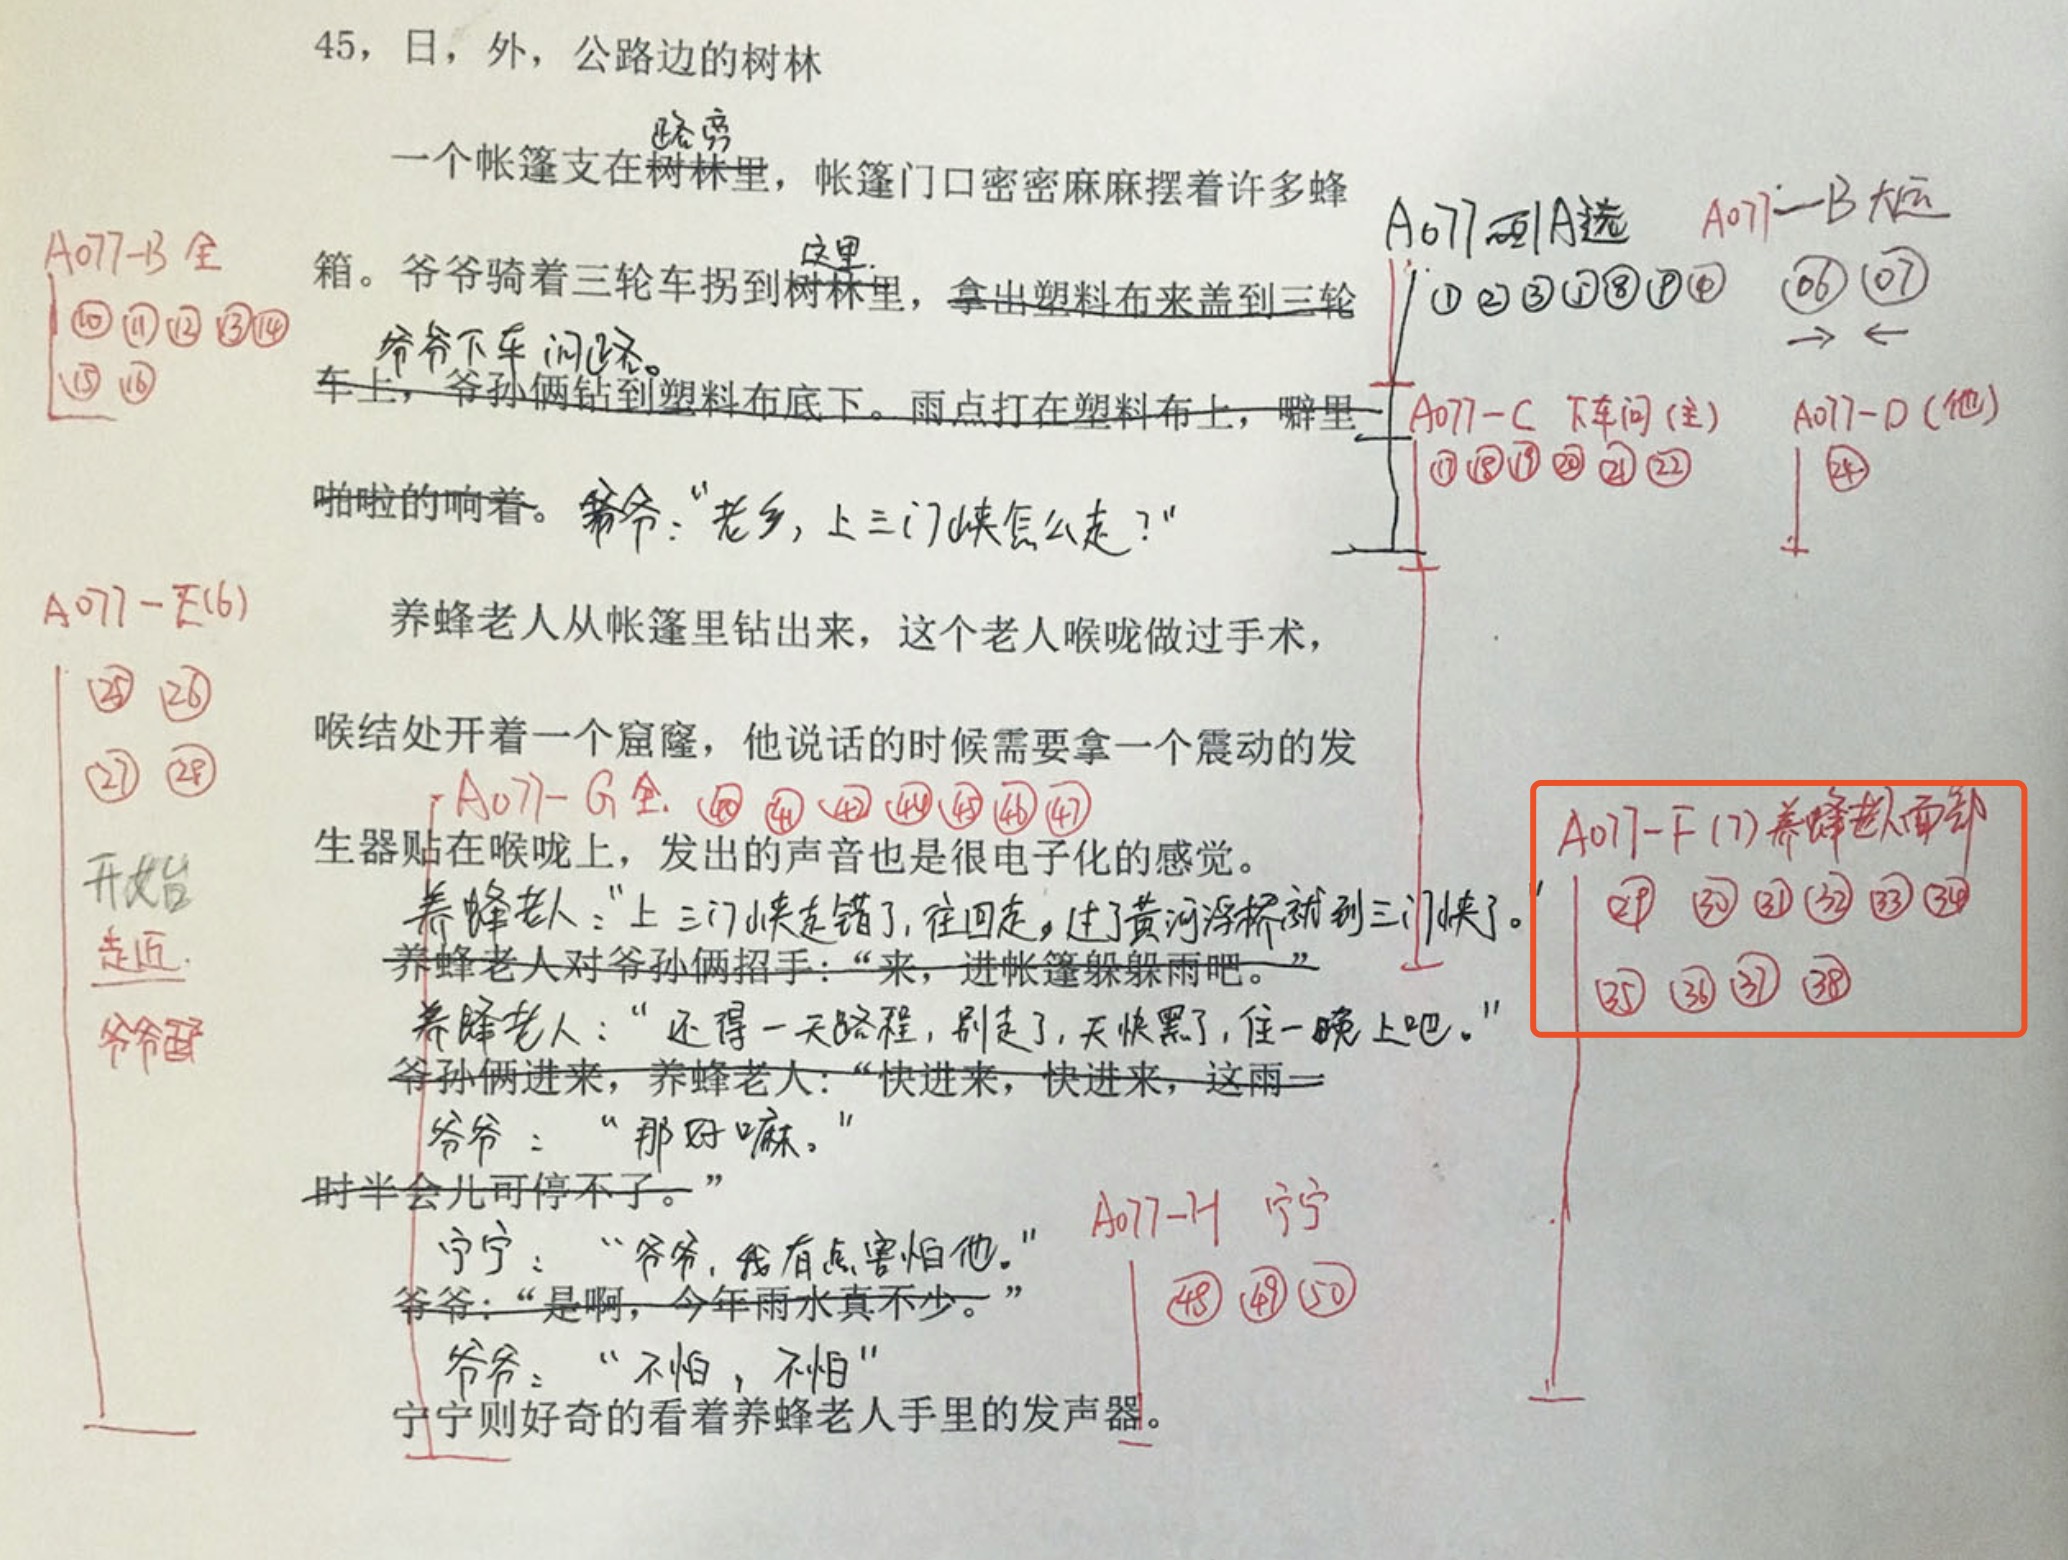 45，日，外，公路边的树林
路旁
一个帐篷支在树林里，帐篷门口密密麻麻摆着许多蜂
A077 A选
A077—B 大远
① ② ③
06 07
→ ←
A077-B 全
⑩ ⑪ ⑫ ⑬ ⑭
⑮ ⑯
这里
箱。爷爷骑着三轮车拐到树林里，拿出塑料布来盖到三轮
爷爷下车问路。
车上，爷孙俩钻到塑料布底下。雨点打在塑料布上，噼里
A077-C 下车问(主)
⑰ ⑱ ⑲ ⑳ ㉑ ㉒
A077-D(他)
㉔
啪啦的响着。爷爷：“老乡，上三门峡怎么走？”
A077-E(6)
㉕ ㉖
㉗ ㉘
开始
走近.
爷爷
养蜂老人从帐篷里钻出来，这个老人喉咙做过手术，
喉结处开着一个窟窿，他说话的时候需要拿一个震动的发
A077-G 全. ㊵ ㊶ ㊷ ㊹ ㊺ ㊻ ㊼
生器贴在喉咙上，发出的声音也是很电子化的感觉。
A077-F(7)养蜂老人面部
㉙ ㉚ ㉛ ㉜ ㉝ ㉞
㉟ ㊱ ㊲ ㊳
养蜂老人：“上三门峡走错了，往回走，过了黄河浮桥就到三门峡了。”
养蜂老人对爷孙俩招手：“来，进帐篷躲躲雨吧。”
养蜂老人：“还得一天路程，别走了，天快黑了，住一晚上吧。”
爷孙俩进来，养蜂老人：“快进来，快进来，这雨一
爷爷：“那好嘛。”
时半会儿可停不了。”
A077-H 宁宁
㊽ ㊾ ㊿
宁宁：“爷爷，我有点害怕他。”
爷爷：“是啊，今年雨水真不少。”
爷爷：“不怕，不怕”
宁宁则好奇的看着养蜂老人手里的发声器。